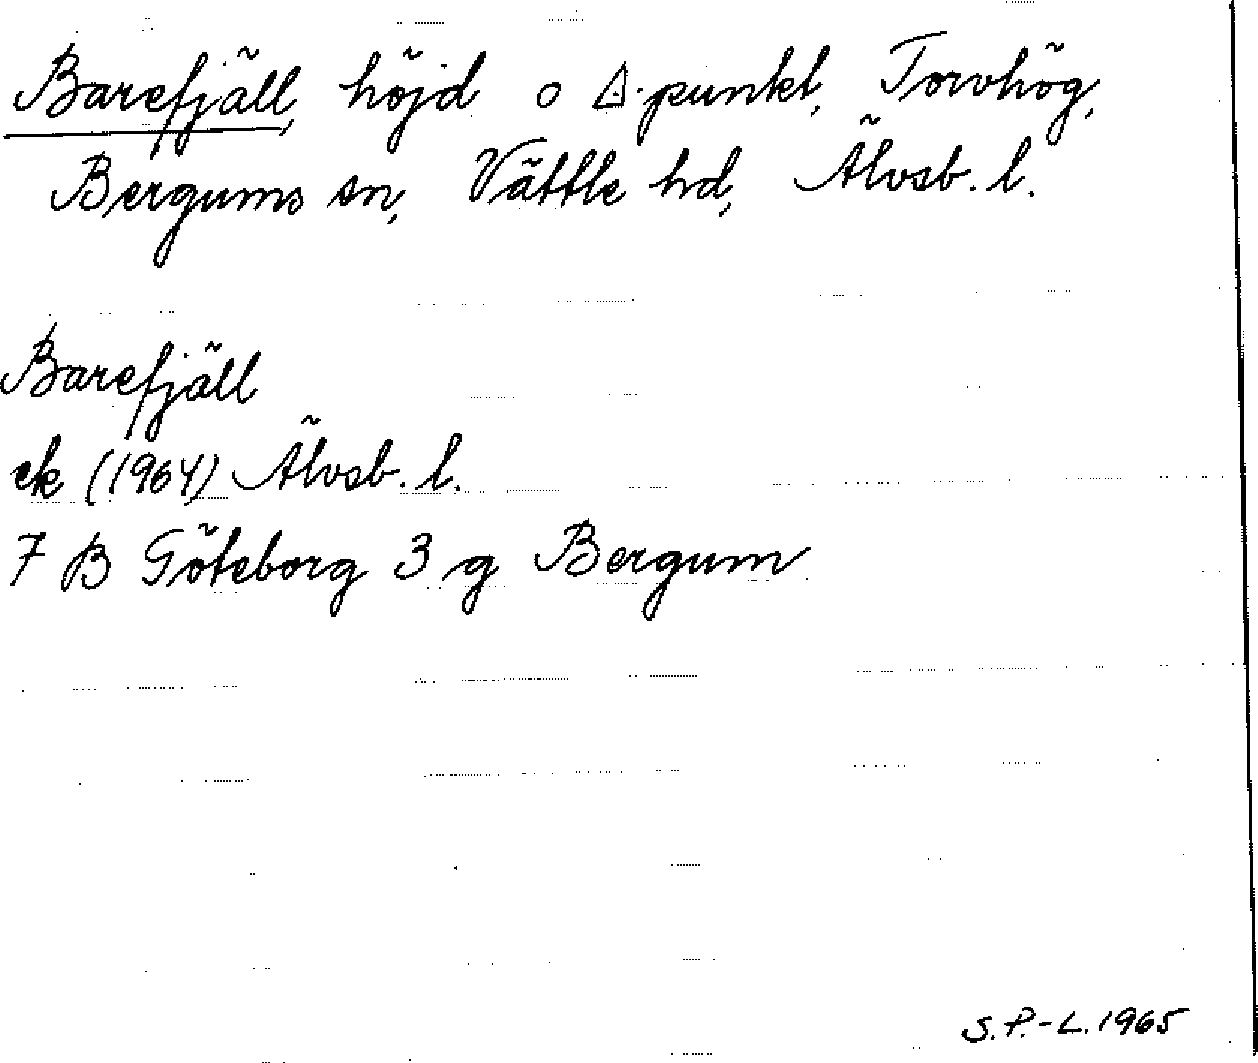 Barefjäll, höjd o △.punkt, Torvhög,
Bergums sn, Vättle hd, Älvsb. l.
Barefjäll
ek (1964) Älvsb. l.
7 B Göteborg 3 g Bergum
S.P.-L. 1965